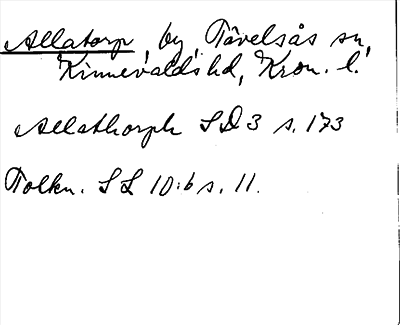 Allatorp, by, Tävelsås sn,
Kinnevalds hd, Kron. l.
Allathorph SD 3 s. 173
Tolkn. SL 10:b s. 11.